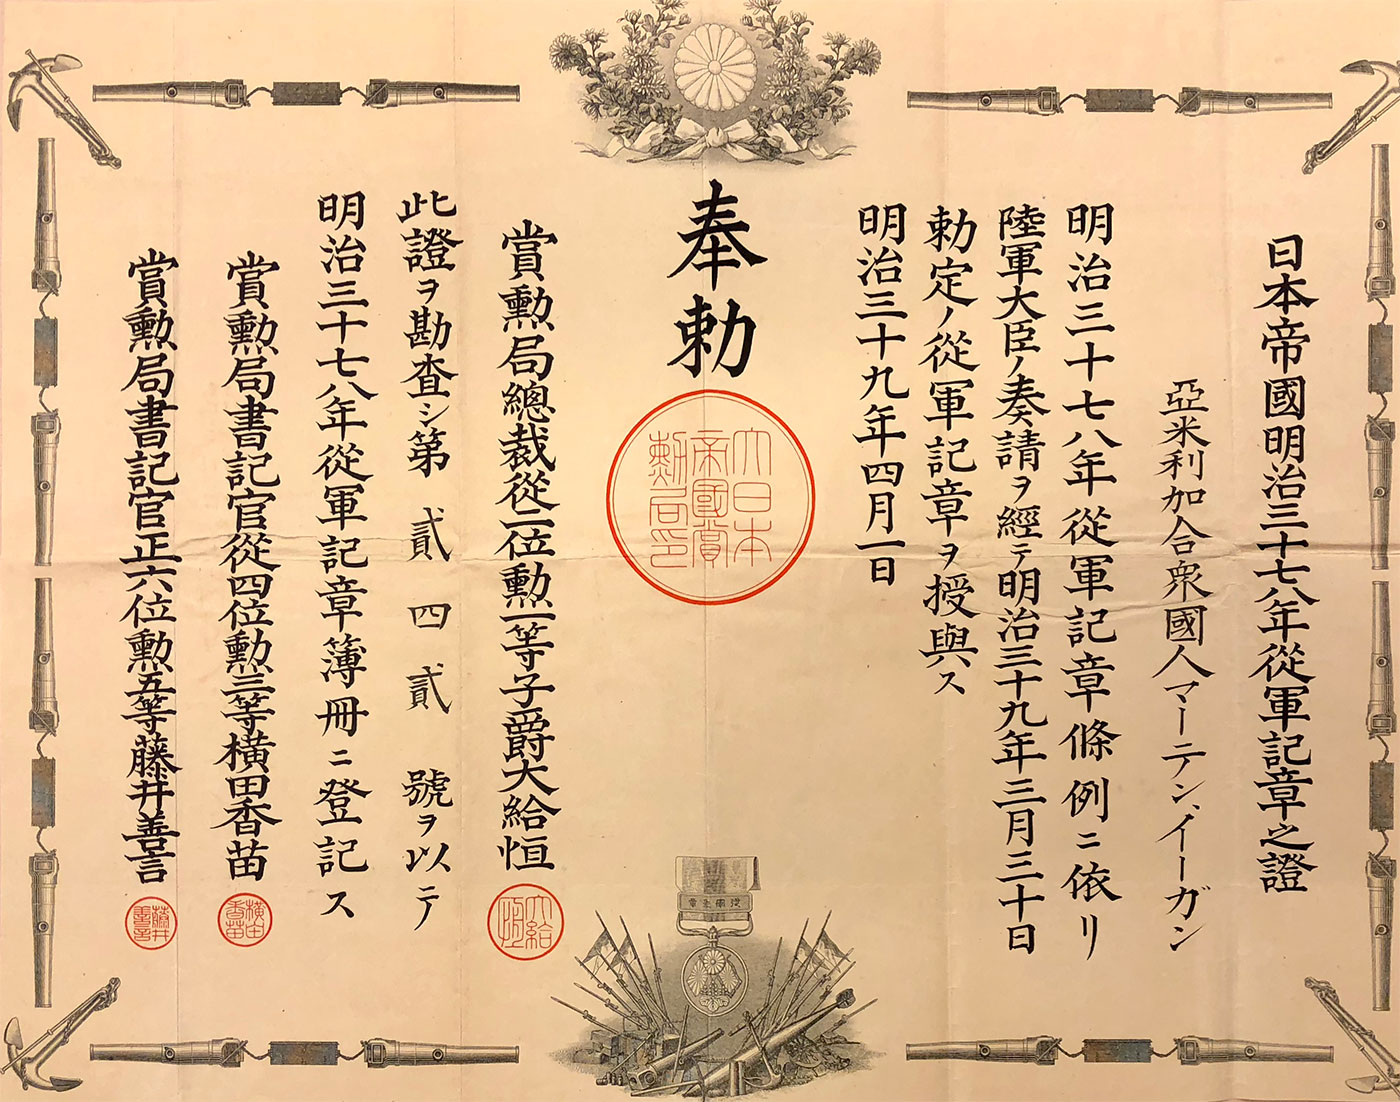 日本帝國明治三十七八年從軍記章之證
亞米利加合衆國人マーテン、イーガン
明治三十七八年從軍記章條例ニ依リ
陸軍大臣ノ奏請ヲ經テ明治三十九年三月三十日
勅定ノ從軍記章ヲ授與ス
明治三十九年四月一日
奉勅
大日本
帝國賞
勲局印
賞勲局總裁從二位勲一等子爵大給恒
大給
恒
此證ヲ勘査シ第貳四貳號ヲ以テ
明治三十七八年從軍記章簿冊ニ登記ス
賞勲局書記官從四位勲三等横田香苗
横田
香苗
賞勲局書記官正六位勲五等藤井善言
藤井
善言
章記軍從